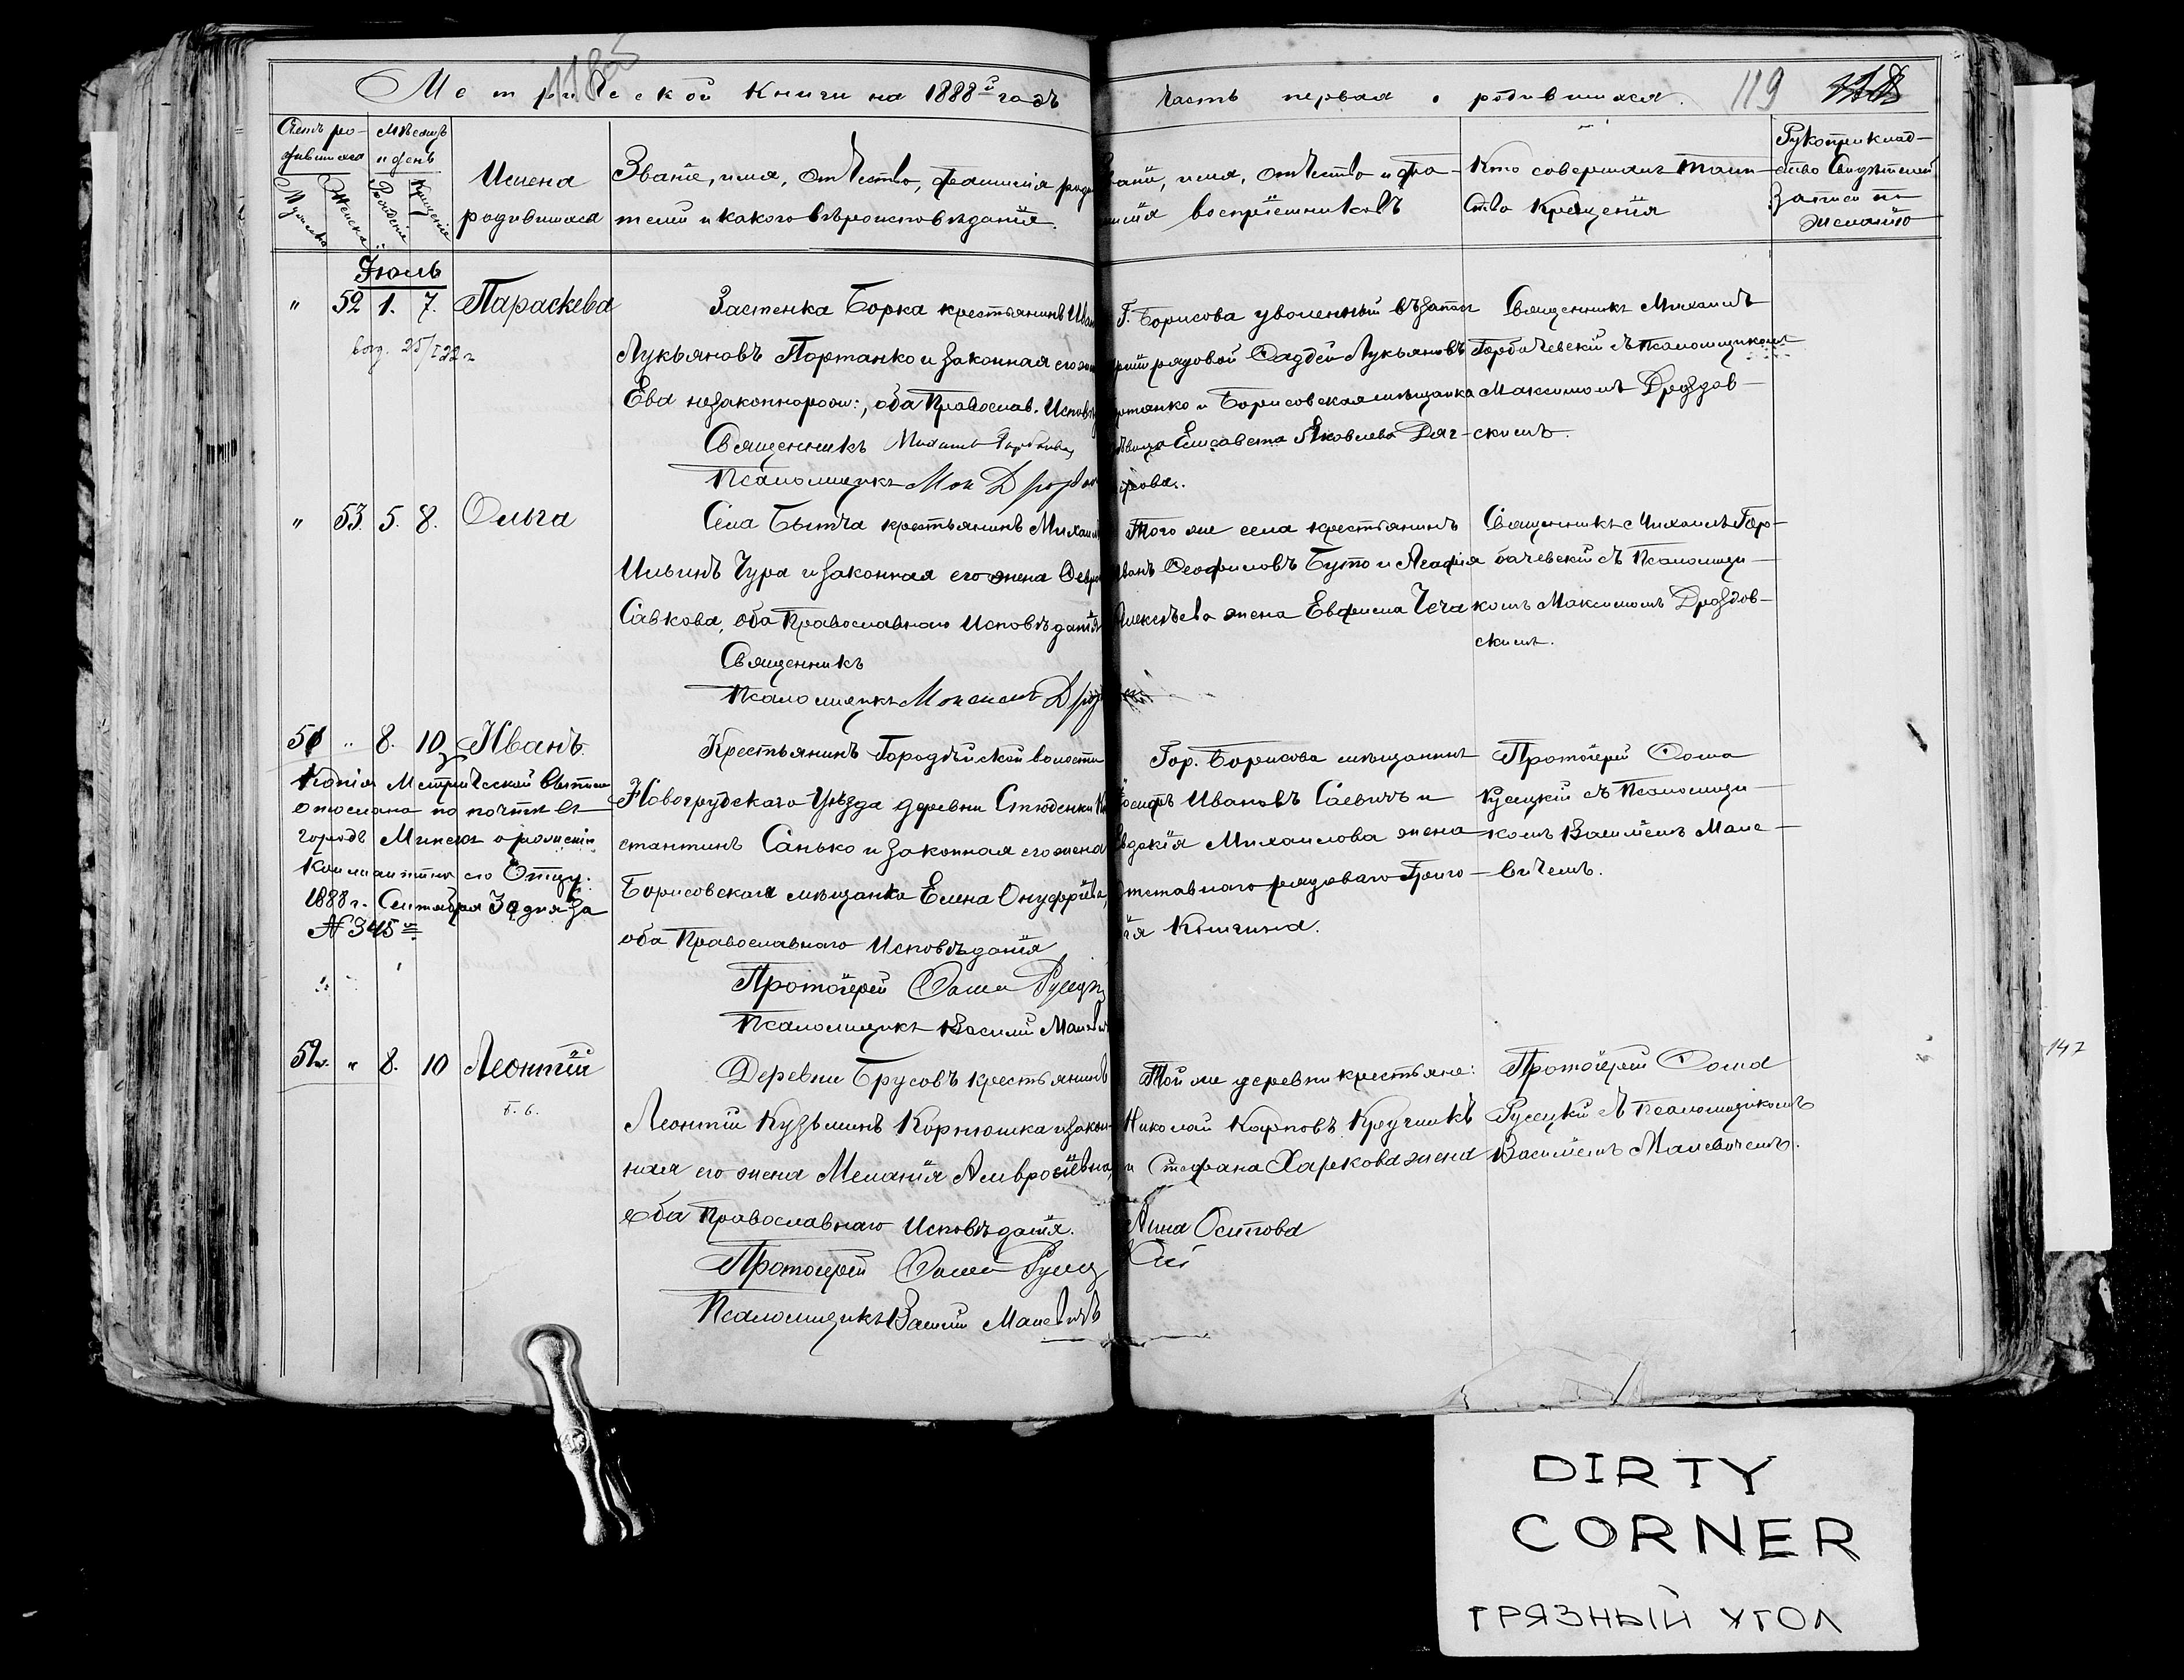 Метрической книги на 1888й годъ
часть первая о родившихся. 119
Счетъ ро-
дившихся
Мѣсяцъ
и день
Мужска
Женска
Рожденіе
Крещеніе
Имена
родившихся
Званіе, имя, отчество, фамилія роди
телей и какого вѣроисповѣданія.
званіе, имя, отчество и фа-
милія воспріемниковъ
Кто совершалъ таин-
ство крещенія
Рукоприклад-
ство свидѣтелей
записи по
желанію
Іюль
" 52 1. 7. Параскева
25/I 22 г
Застенка Борка крестьянинъ Иван
Лукьяновъ Портанко и законная его жен
Ева незаконнорож:, оба Православ. Исповѣ
Священникъ Михаилъ Горбачев
Псаломщикъ Мак Дроздов
Г. Борисова уволенный въ запас
рядовой Фаддей Лукьяновъ
ртанко и Борисовская мѣщанка
дѣвица Елисавета Яковлева Дяг-
Священникъ Михаилъ
Горбачевскій съ псаломщикомъ
Максимомъ Дроздов-
скимъ.
" 53. 5. 8. Ольга
Села Бытча крестьянинъ Михаил
Ильинъ Чура и законная его жена
Савкова, оба Православнаго Исповѣданія
Священникъ
Псаломщикъ Максимъ Дрозд
Того же села крестьянинъ
Иванъ Феофиловъ Буто и Агафія
Алексѣева жена Евфима Чеча
Священникъ Михаилъ Гор-
бачевскій съ Псаломщи-
комъ Максимомъ Дроздов-
скимъ.
51 " 8. 10 Иванъ.
Копія Метрической выписи
отослана по почтѣ въ
городъ Минскъ
его Отцу.
1888 г. Сентября 30 дня за
№ 345м
Крестьянинъ Городѣйской волости
Новогрудскаго Уѣзда деревни Стюденки Кон
стантинъ Санько и законная его жена
Борисовская мѣщанка Елена Онуфріева,
оба Православнаго Исповѣданія
Протоіерей Фома Русецк
Псаломщикъ Василій Малевич
Гор. Борисова мѣщанинъ
Іосифъ Ивановъ Саевичъ и
Евдокія Михаилова жена
отставнаго рядоваго Григо-
рія
Протоіерей Фома
Русецкій съ Псаломщи-
комъ Василіемъ Мале-
вичемъ.
52. " 8. 10 Леонтій
Деревни Брусовъ крестьянинъ
Леонтій Кузьминъ Корнюшка и закон-
ная его жена Меланія Амвросіевна,
оба Православнаго Исповѣданія.
Протоіерей Фома Русец
Псаломщикъ Василій Малевичъ
Той же деревни крестьяне:
Николай Карповъ Кручикъ
и Стефана Харкова жена
Анна Осипова
Протоіерей Фома
Русецкій съ псаломщикомъ
Василіемъ Малевичемъ.
147
DIRTY
CORNER
ГРЯЗНЫЙ УГОЛ